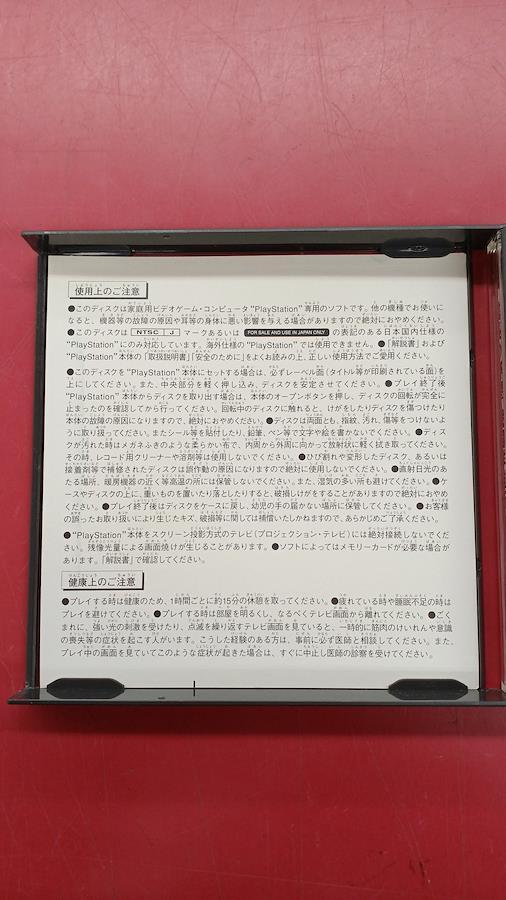 使用上のご注意
●このディスクは家庭用ビデオゲーム・コンピュータ"PlayStation"専用のソフトです。他の機種でお使いに
なると、機器等の故障の原因や耳等の身体に悪い影響を与える場合がありますので絶対におやめください。
●このディスクは NTSC J マークあるいは FOR SALE AND USE IN JAPAN ONLY の表記のある日本国内仕様の
"PlayStation"にのみ対応しています。海外仕様の"PlayStation"では使用できません。●「解説書」および
"PlayStation"本体の「取扱説明書」「安全のために」をよくお読みの上、正しい使用方法でご愛用ください。
●このディスクを"PlayStation"本体にセットする場合は、必ずレーベル面(タイトル等が印刷されている面)を
上にしてください。また、中央部分を軽く押し込み、ディスクを安定させてください。●プレイ終了後
"PlayStation"本体からディスクを取り出す場合は、本体のオープンボタンを押し、ディスクの回転が完全に
止まったのを確認してから行ってください。回転中のディスクに触れると、けがをしたりディスクを傷つけたり
本体の故障の原因になりますので、絶対におやめください。●ディスクは両面とも、指紋、汚れ、傷等をつけないよ
うに取り扱ってください。またシール等を貼付したり、鉛筆、ペン等で文字や絵を書かないでください。●ディス
クが汚れた時はメガネふきのような柔らかい布で、内周から外周に向かって放射状に軽く拭き取ってください。
その時、レコード用クリーナーや溶剤等は使用しないでください。●ひび割れや変形したディスク、あるいは
接着剤等で補修されたディスクは誤作動の原因になりますので絶対に使用しないでください。●直射日光のあ
たる場所、暖房機器の近く等高温の所には保管しないでください。また、湿気の多い所も避けてください。●ケ
ースやディスクの上に、重いものを置いたり落としたりすると、破損しけがをすることがありますので絶対におやめ
ください。●プレイ終了後はディスクをケースに戻し、幼児の手の届かない場所に保管してください。●お客様
の誤ったお取り扱いにより生じたキズ、破損等に関しては補償いたしかねますので、あらかじめご了承ください。
●"PlayStation"本体をスクリーン投影方式のテレビ(プロジェクション・テレビ)には絶対接続しないでくだ
さい。残像光量による画面焼けが生じることがあります。●ソフトによってはメモリーカードが必要な場合が
あります。「解説書」で確認してください。
健康上のご注意
●プレイする時は健康のため、1時間ごとに約15分の休憩を取ってください。●疲れている時や睡眠不足の時は
プレイを避けてください。●プレイする時は部屋を明るくし、なるべくテレビ画面から離れてください。●ごく
まれに、強い光の刺激を受けたり、点滅を繰り返すテレビ画面を見ていると、一時的に筋肉のけいれんや意識
の喪失等の症状を起こす人がいます。こうした経験のある方は、事前に必ず医師と相談してください。また、
プレイ中の画面を見ていてこのような症状が起きた場合は、すぐに中止し医師の診察を受けてください。